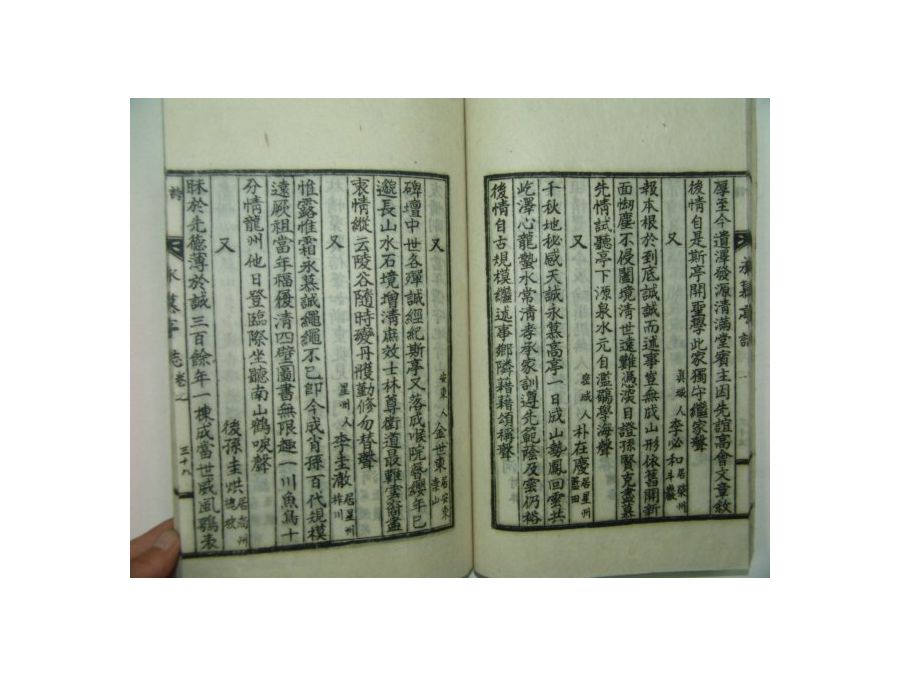 厚至今遺澤發源清滿堂賓主因先誼高會文章敘
後情自是斯亭開聖學此家獨守繼家聲
又 眞城人李必和居榮州斗巖
報本根於到底誠誠而述事豈無成山形依舊開新
面蝴塵不侵闔境清世遠難憑演目證孫賢克盡慕
先情試聽亭下源泉水元自濫觴學海聲
又 密城人朴在慶居星州藍田
千秋地秘感天誠永慕高亭一日成山勢鳳回雲共
屹澤心龍蟄水常清孝承家訓遵先範蔭及雲仍裕
後情自古規模繼述事鄉隣藉藉頌稱聲
安東人金世東居安東崇山
碑壇中世各殫誠經紀斯亭又落成喉院簪纓年已
邈長山水石境增清庶效士林尊衛道最難雲裔盡
衷情縱云陵谷隨時變丹雘勤修勿替聲
又 星州人李圭澈居星州柞川
惟露惟霜永慕誠繩繩不已卽今成肖孫百代規模
遠厥祖當年福優清四壁圖書無限趣一川魚鳥十
分情龍州他日登臨際坐聽南山鶴唳聲
又 後孫圭烘居尙州
昧於先德薄於誠三百餘年一棟成當世威風鴞表
永慕亭 三十八